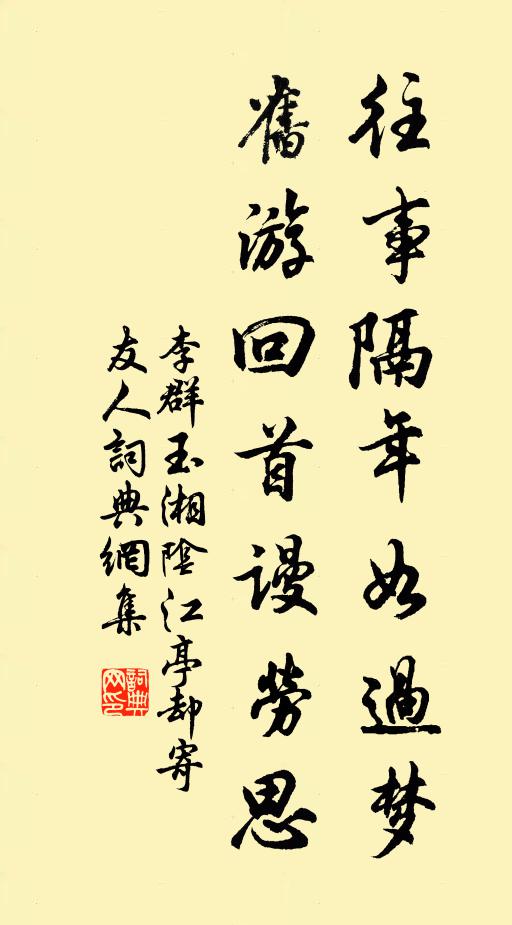 往事隔年如過梦
舊游回首謾勞思
李群玉湘陰江亭却寄
友人詞典網集
詞典网印